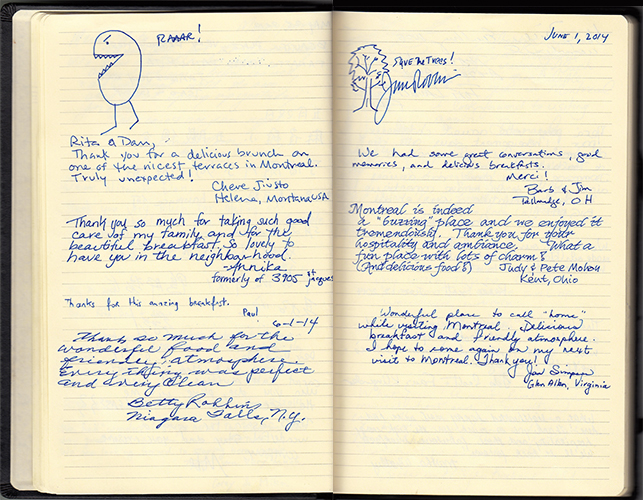 RAAAR!
Rita & Dan,
Thank you for a delicious brunch on
one of the nicest terraces in Montreal.
Truly unexpected!
Cheve Jiusto
Helena, Montana USA
Thank you so much for taking such good
care of my family and for the
beautiful breakfast, so lovely to
have you in the neighbourhood.
-Annika
formerly of 3905 St Jacques
Thanks for this amazing breakfast.
Paul
6-1-14
Thanks so much for the
wonderful food and
friendly, atmosphere.
Every thing was perfect
and very clean
Betty Robbins
Niagara Falls, N.Y.
JUNE 1, 2014
SAVE THE TREES!
We had some great conversations, good
memories, and delicious breakfasts.
Merci!
Barb & Jim
Tallmadge, OH
Montreal is indeed
a "buzzing" place and we enjoyed it
tremendously. Thank you for your
hospitality and ambience. What a
fun place with lots of charm!
(And delicious food!) Judy & Pete
Kent, Ohio
Wonderful place to call "home"
while visiting Montreal. Delicious
breakfast and friendly atmosphere.
I hope to come again on my next
visit to Montreal. Thank you!
Jan Simpson
Glen Allen, Virginia